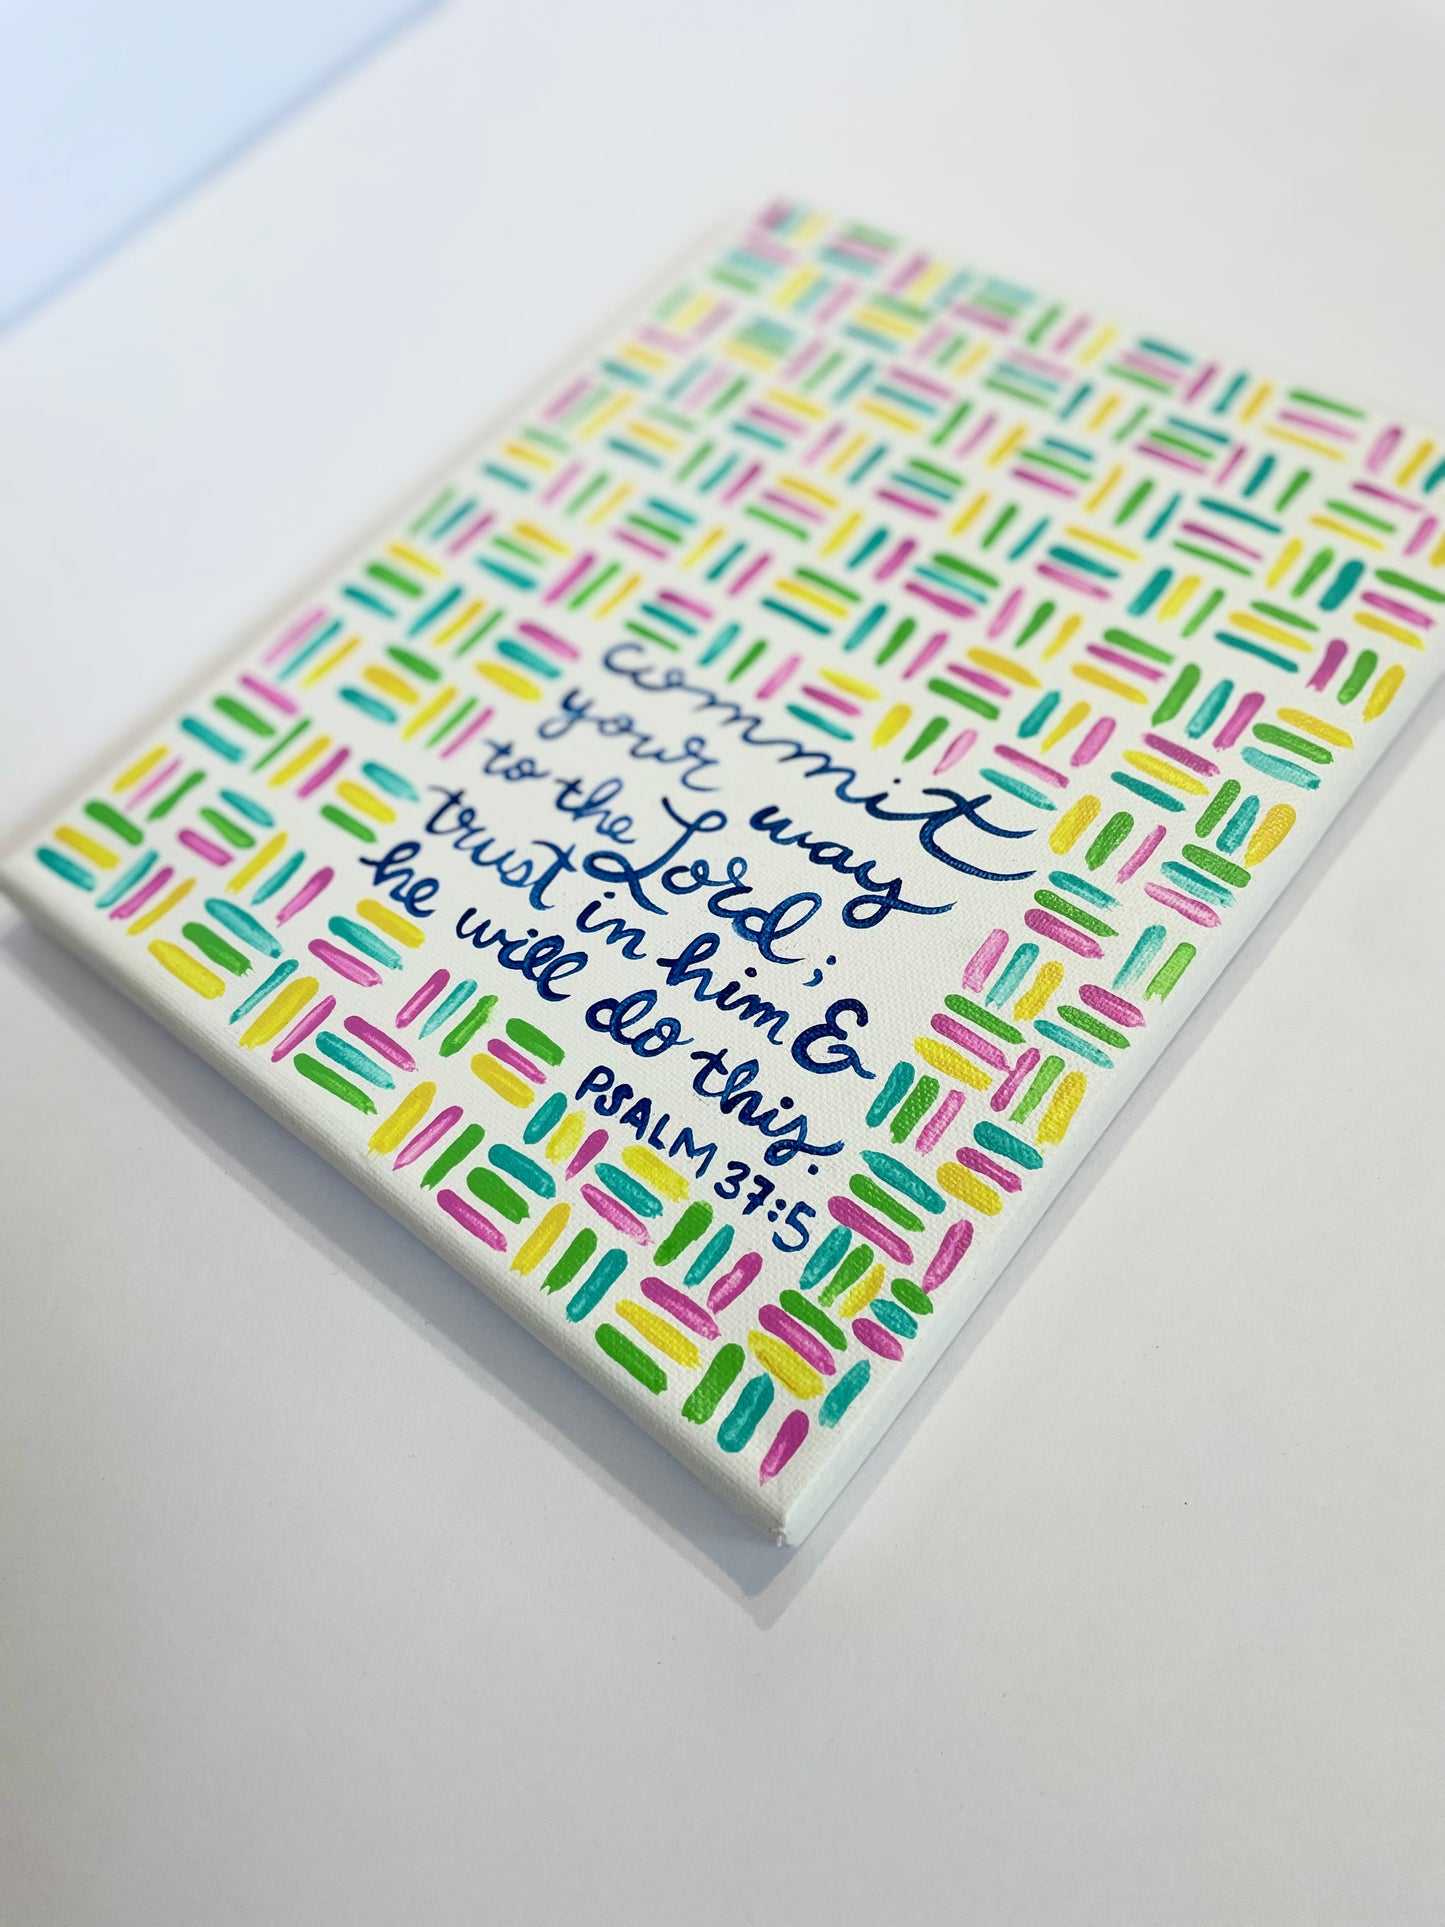 commit
your way
to the Lord;
trust in him &
he will do this.
PSALM 37:5